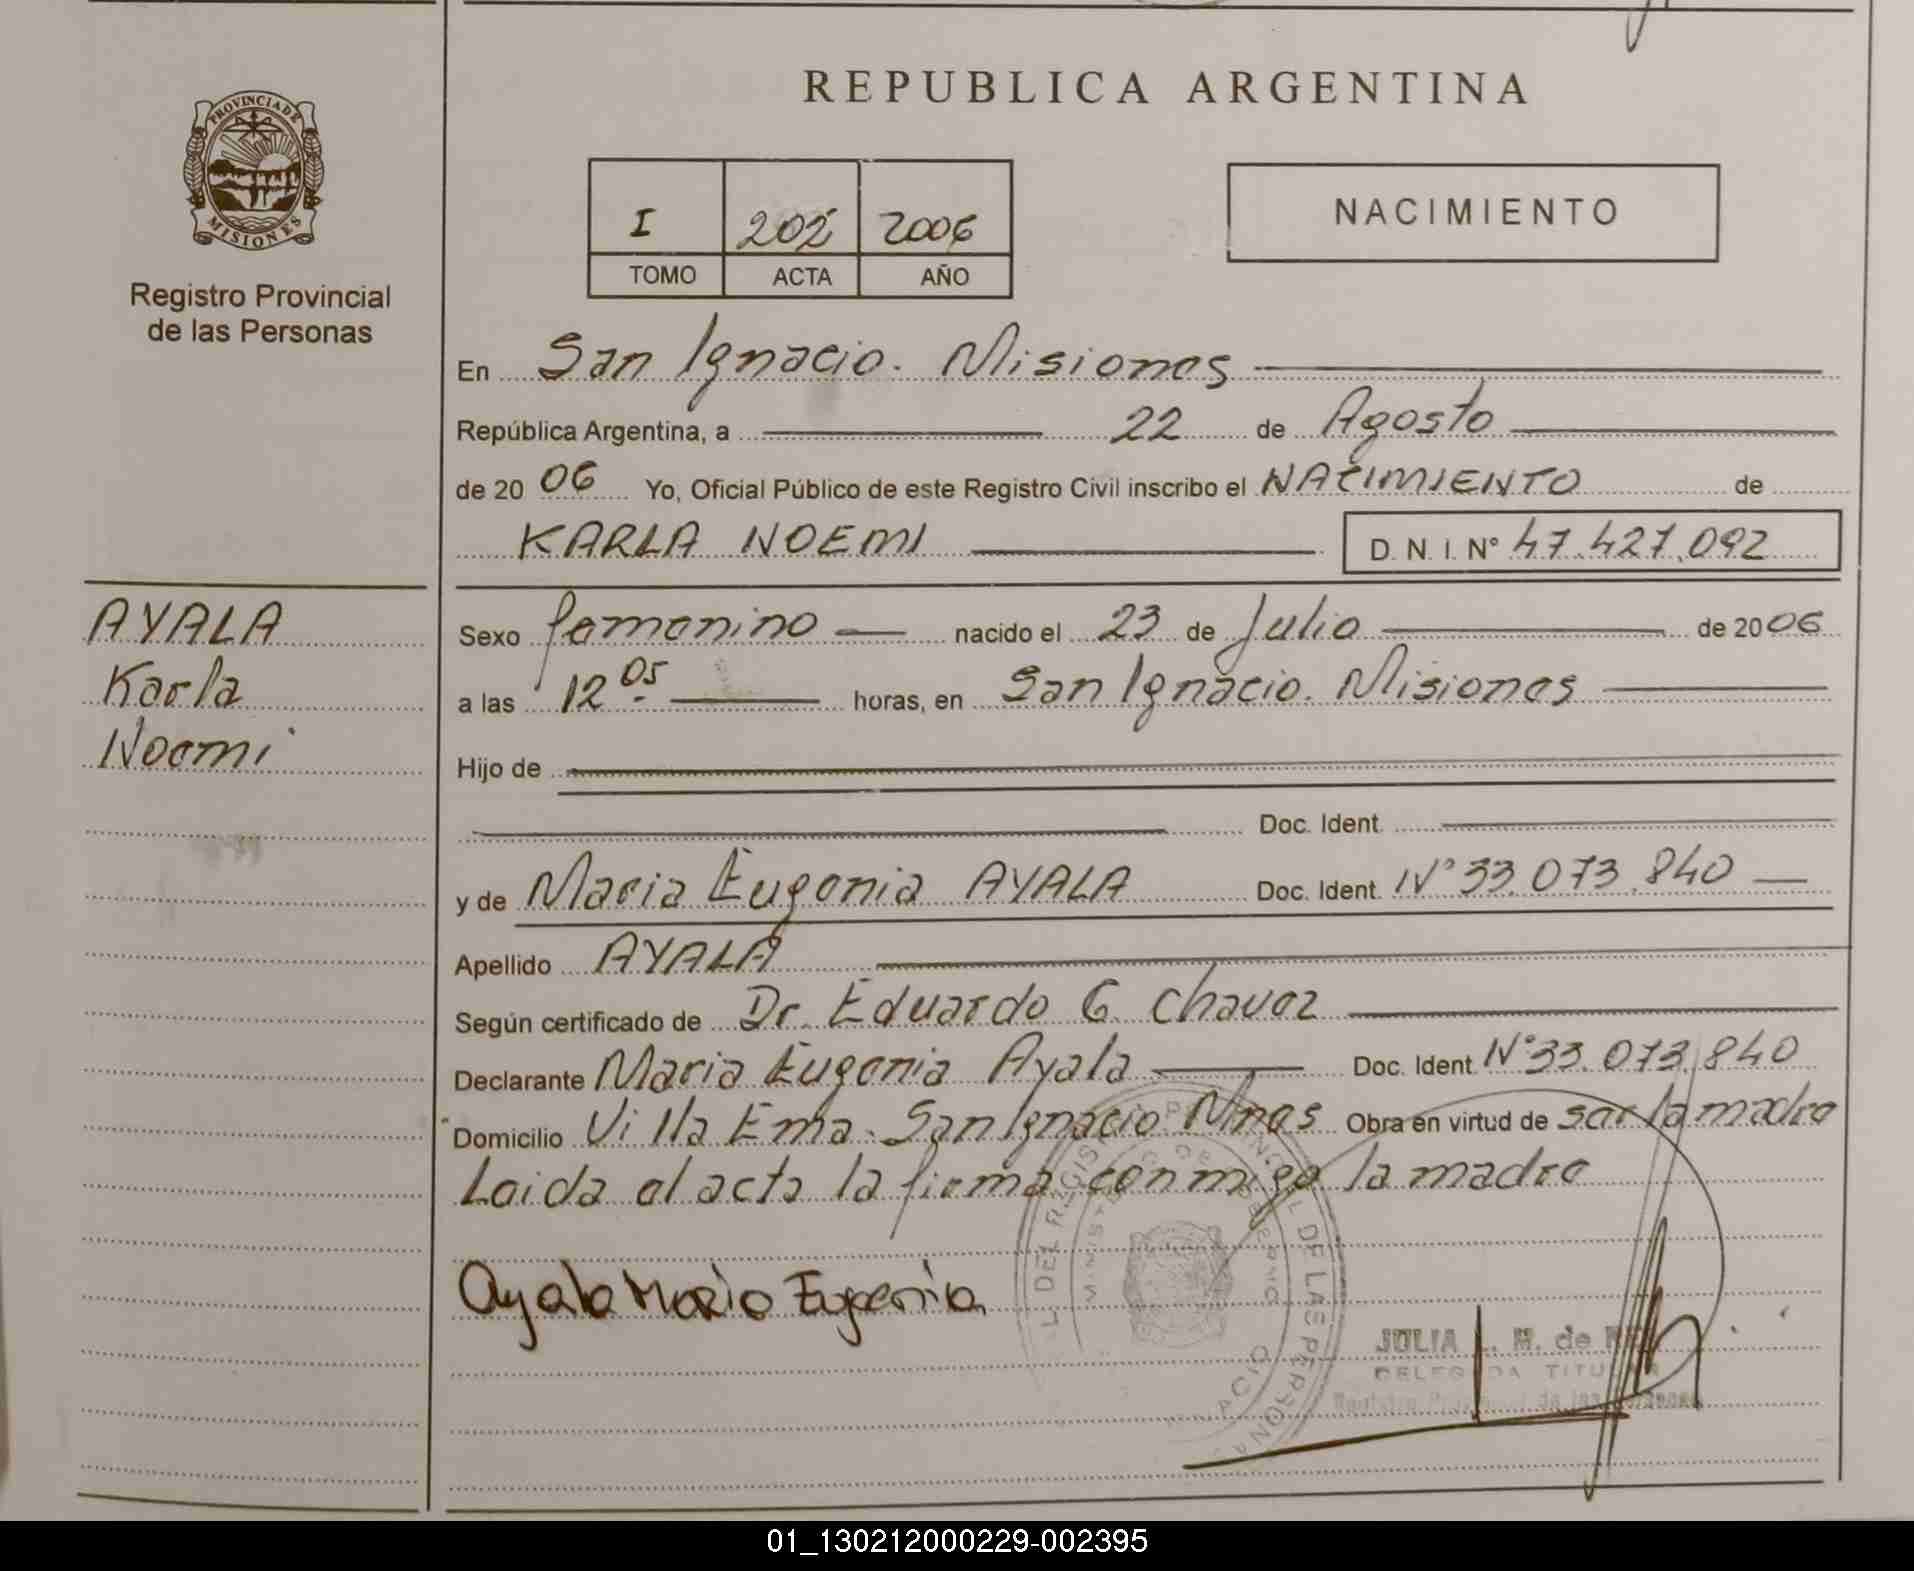 REPUBLICA ARGENTINA
PROVINCIA DE
MISIONES
Registro Provincial
de las Personas
I 202 2006
TOMO ACTA AÑO
NACIMIENTO
En San Ignacio. Misiones
República Argentina, a 22 de Agosto
de 20 06 Yo, Oficial Público de este Registro Civil inscribo el NACIMIENTO de
KARLA NOEMI D. N. I. N° 47.427.092
AYALA
Karla
Noemi
Sexo femenino nacido el 23 de Julio de 20 06
a las 12 05 horas, en San Ignacio. Misiones
Hijo de
Doc. Ident.
y de Maria Eugenia AYALA Doc. Ident. N° 33.073.840
Apellido AYALA
Según certificado de Dr. Eduardo G Chavez
Declarante Maria Eugenia Ayala Doc. Ident. N° 33.073.840
Domicilio Villa Ema. San Ignacio Mnes Obra en virtud de ser la madre
Leida el acta la firma conmigo la madre
Ayala Maria Eugenia
JULIA L. M. de
DELEGADA TITULAR
Registro Provincial de las Personas
01_130212000229-002395